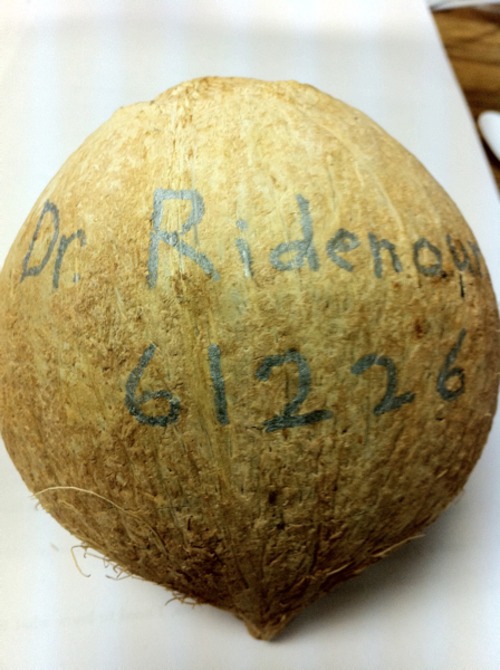 Dr. Ridenour
61226